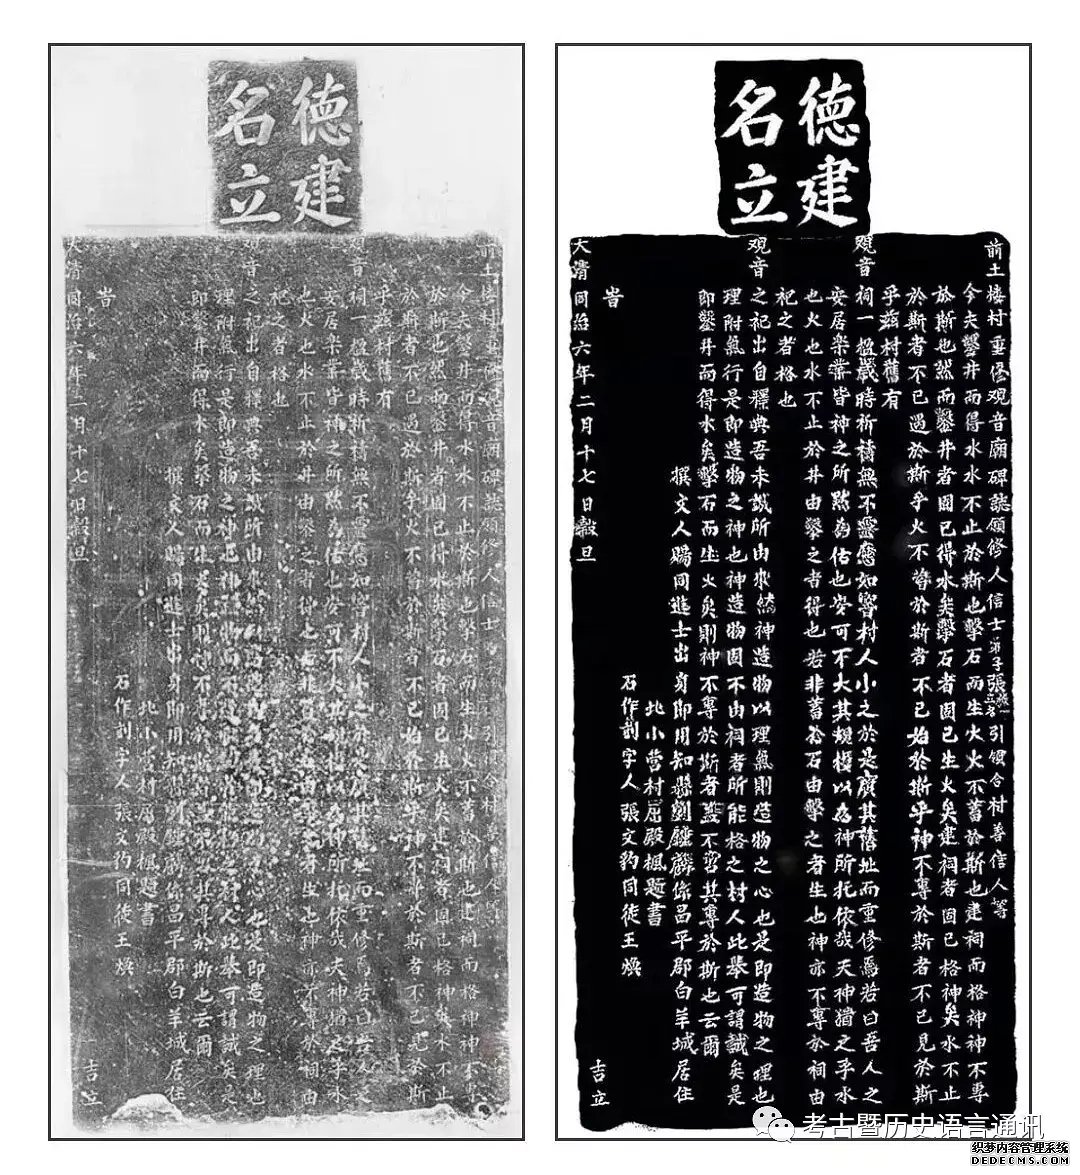 德建
名立
德建
名立
前土樓村重修观音廟碑誌領修人信士弟子張引領合村善信人等
今夫鑿井而得水水不止於斯也擊石而生火火不蓄於斯也建祠而格神神不專
於斯也然而鑿井者固已得水矣擊石者固已生火矣建祠者固已格神矣水不止
於斯者不已過於斯乎火不蓄於斯者不已始於斯乎神不專於斯者不已見於斯
乎兹村舊有
观音祠一楹歲時祈禱無不靈應如響村人小之於是廣其舊址而重修焉若曰吾人之
安居楽業皆神之所默為佑也安可不大其規模以為神所托依哉夫神猶之乎水
也火也水不止於井由鑿之者得也若非蓄於石由擊之者生也神亦不專於祠由
祀之者格也
观音之祀出自釋典吾未識所由來然神造物以理氣則造物之心也是即造物之理也
理附氣行是即造物之神也神造物固不由祠者所能格之村人此舉可謂誠矣是
即鑿井而得水矣擊石而生火矣則神不專於斯者盖不啻其專於斯也云爾
撰文人賜同進士出身即用知縣劉鍾麟係昌平郡白羊城居住
北小營村屈殿楓題書
旹 石作刻字人張文豹同徒王煥
大清同治六年二月十七日穀旦 吉立
考古暨历史语言通讯
织梦内容管理系统
DEDECMS.COM